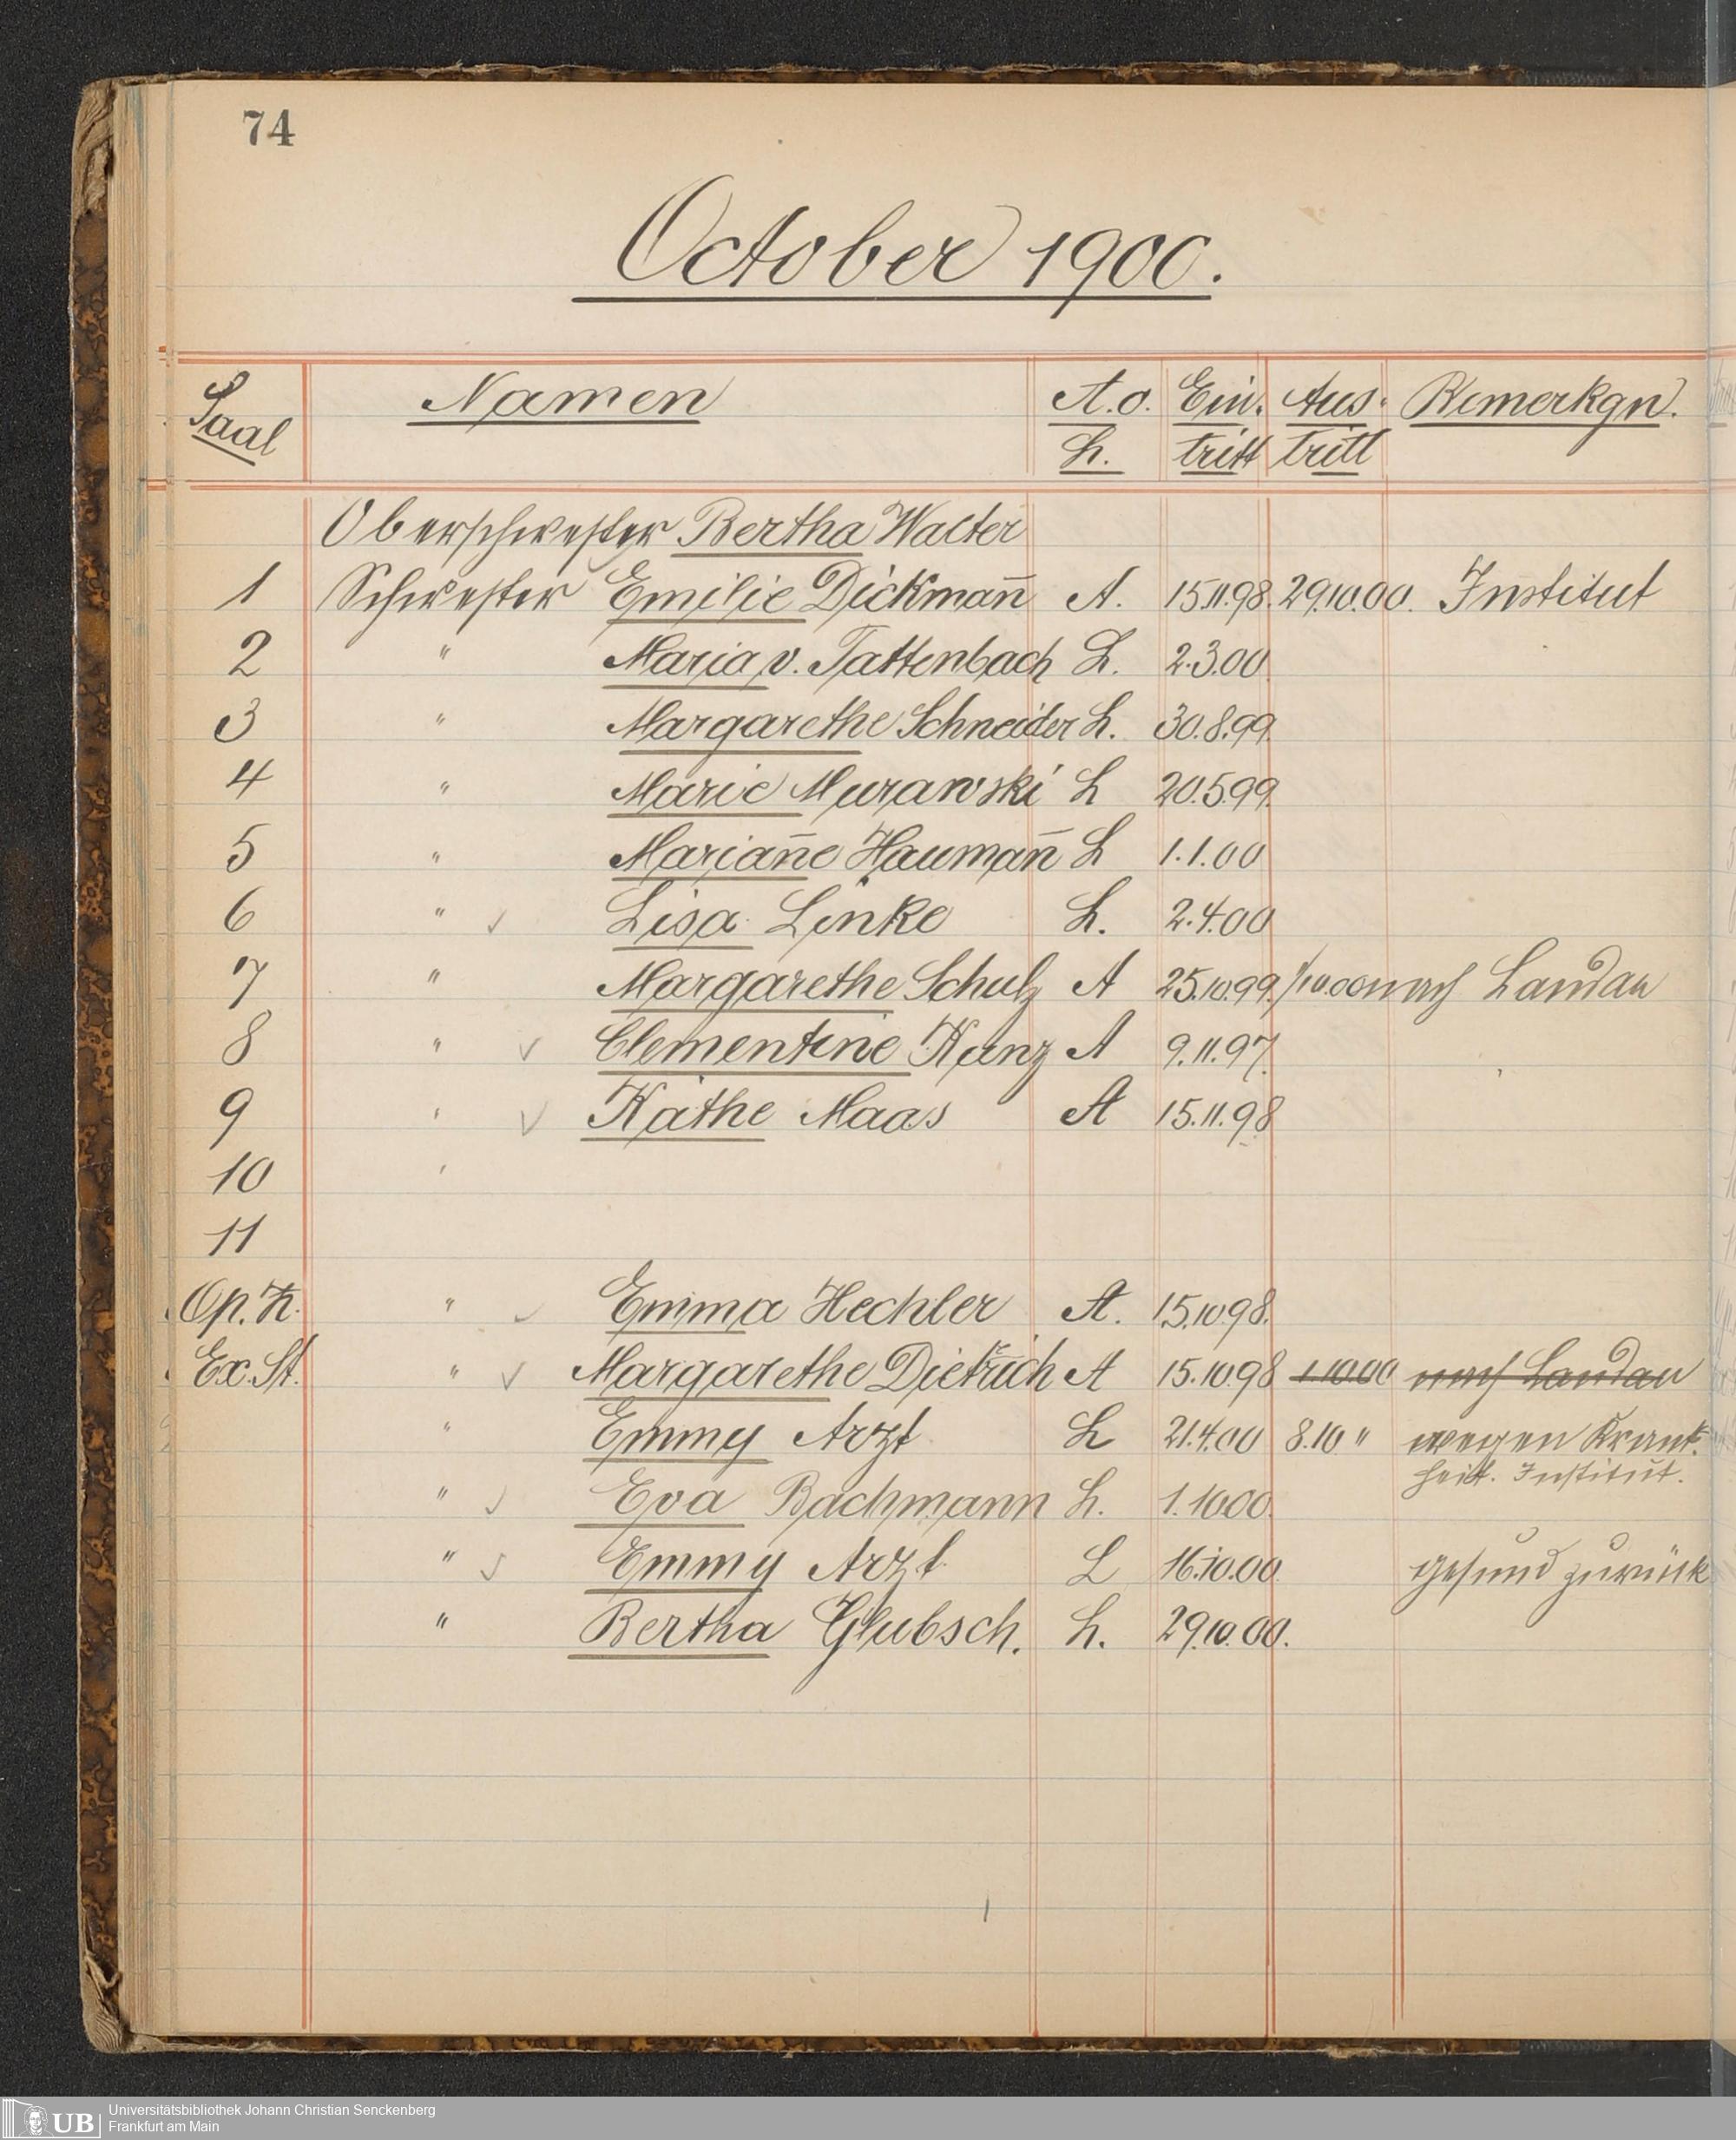 74
October 1900.
Saal Namen A. o. Ein. Aus. Bemerkgn.
L. tritt tritt
Oberschwester Bertha Walter
1 Schwester Emilie Dickman̄ A. 15.11.98. 29.10.00. Institut
2 " Maria v. Tattenbach L. 2.3.00
3 " Margarethe Schneider L. 30.8.99.
4 " Marie Murawski L 20.5.99.
5 " Marian̄e Hauman̄ L 1.1.00
6 " ✓ Lisa Linke L. 2.4.00
7 " Margarethe Schulz A 25.10.99. 1/10.00 nach Landau
8 " ✓ Clementine Kunz A 9.11.97.
9 " ✓ Käthe Maas A 15.11.98
10 "
11
Op. Z. " ✓ Emma Hechler A. 15.10.98.
Ex. St. " ✓ Margarethe Dietrich A 15.10.98 1.10.00 nach Landau
" Emmy Arzt L 21.4.00 8.10 " wegen Krank-
heit. Institut.
" ✓ Eva Bachmann L. 1.10.00.
" ✓ Emmy Arzt L 16.10.00. gesund zurück
" Bertha Glubsch. L. 29.10.00.
UB Universitätsbibliothek Johann Christian Senckenberg
Frankfurt am Main